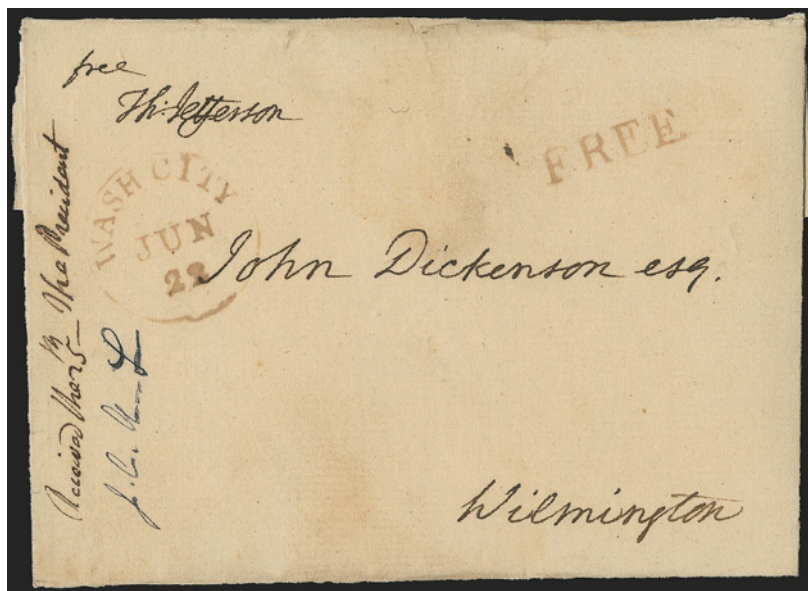 free
Th: Jefferson
FREE
WASH CITY
JUN
22
John Dickenson esq.
Wilmington
Received the 25th The President